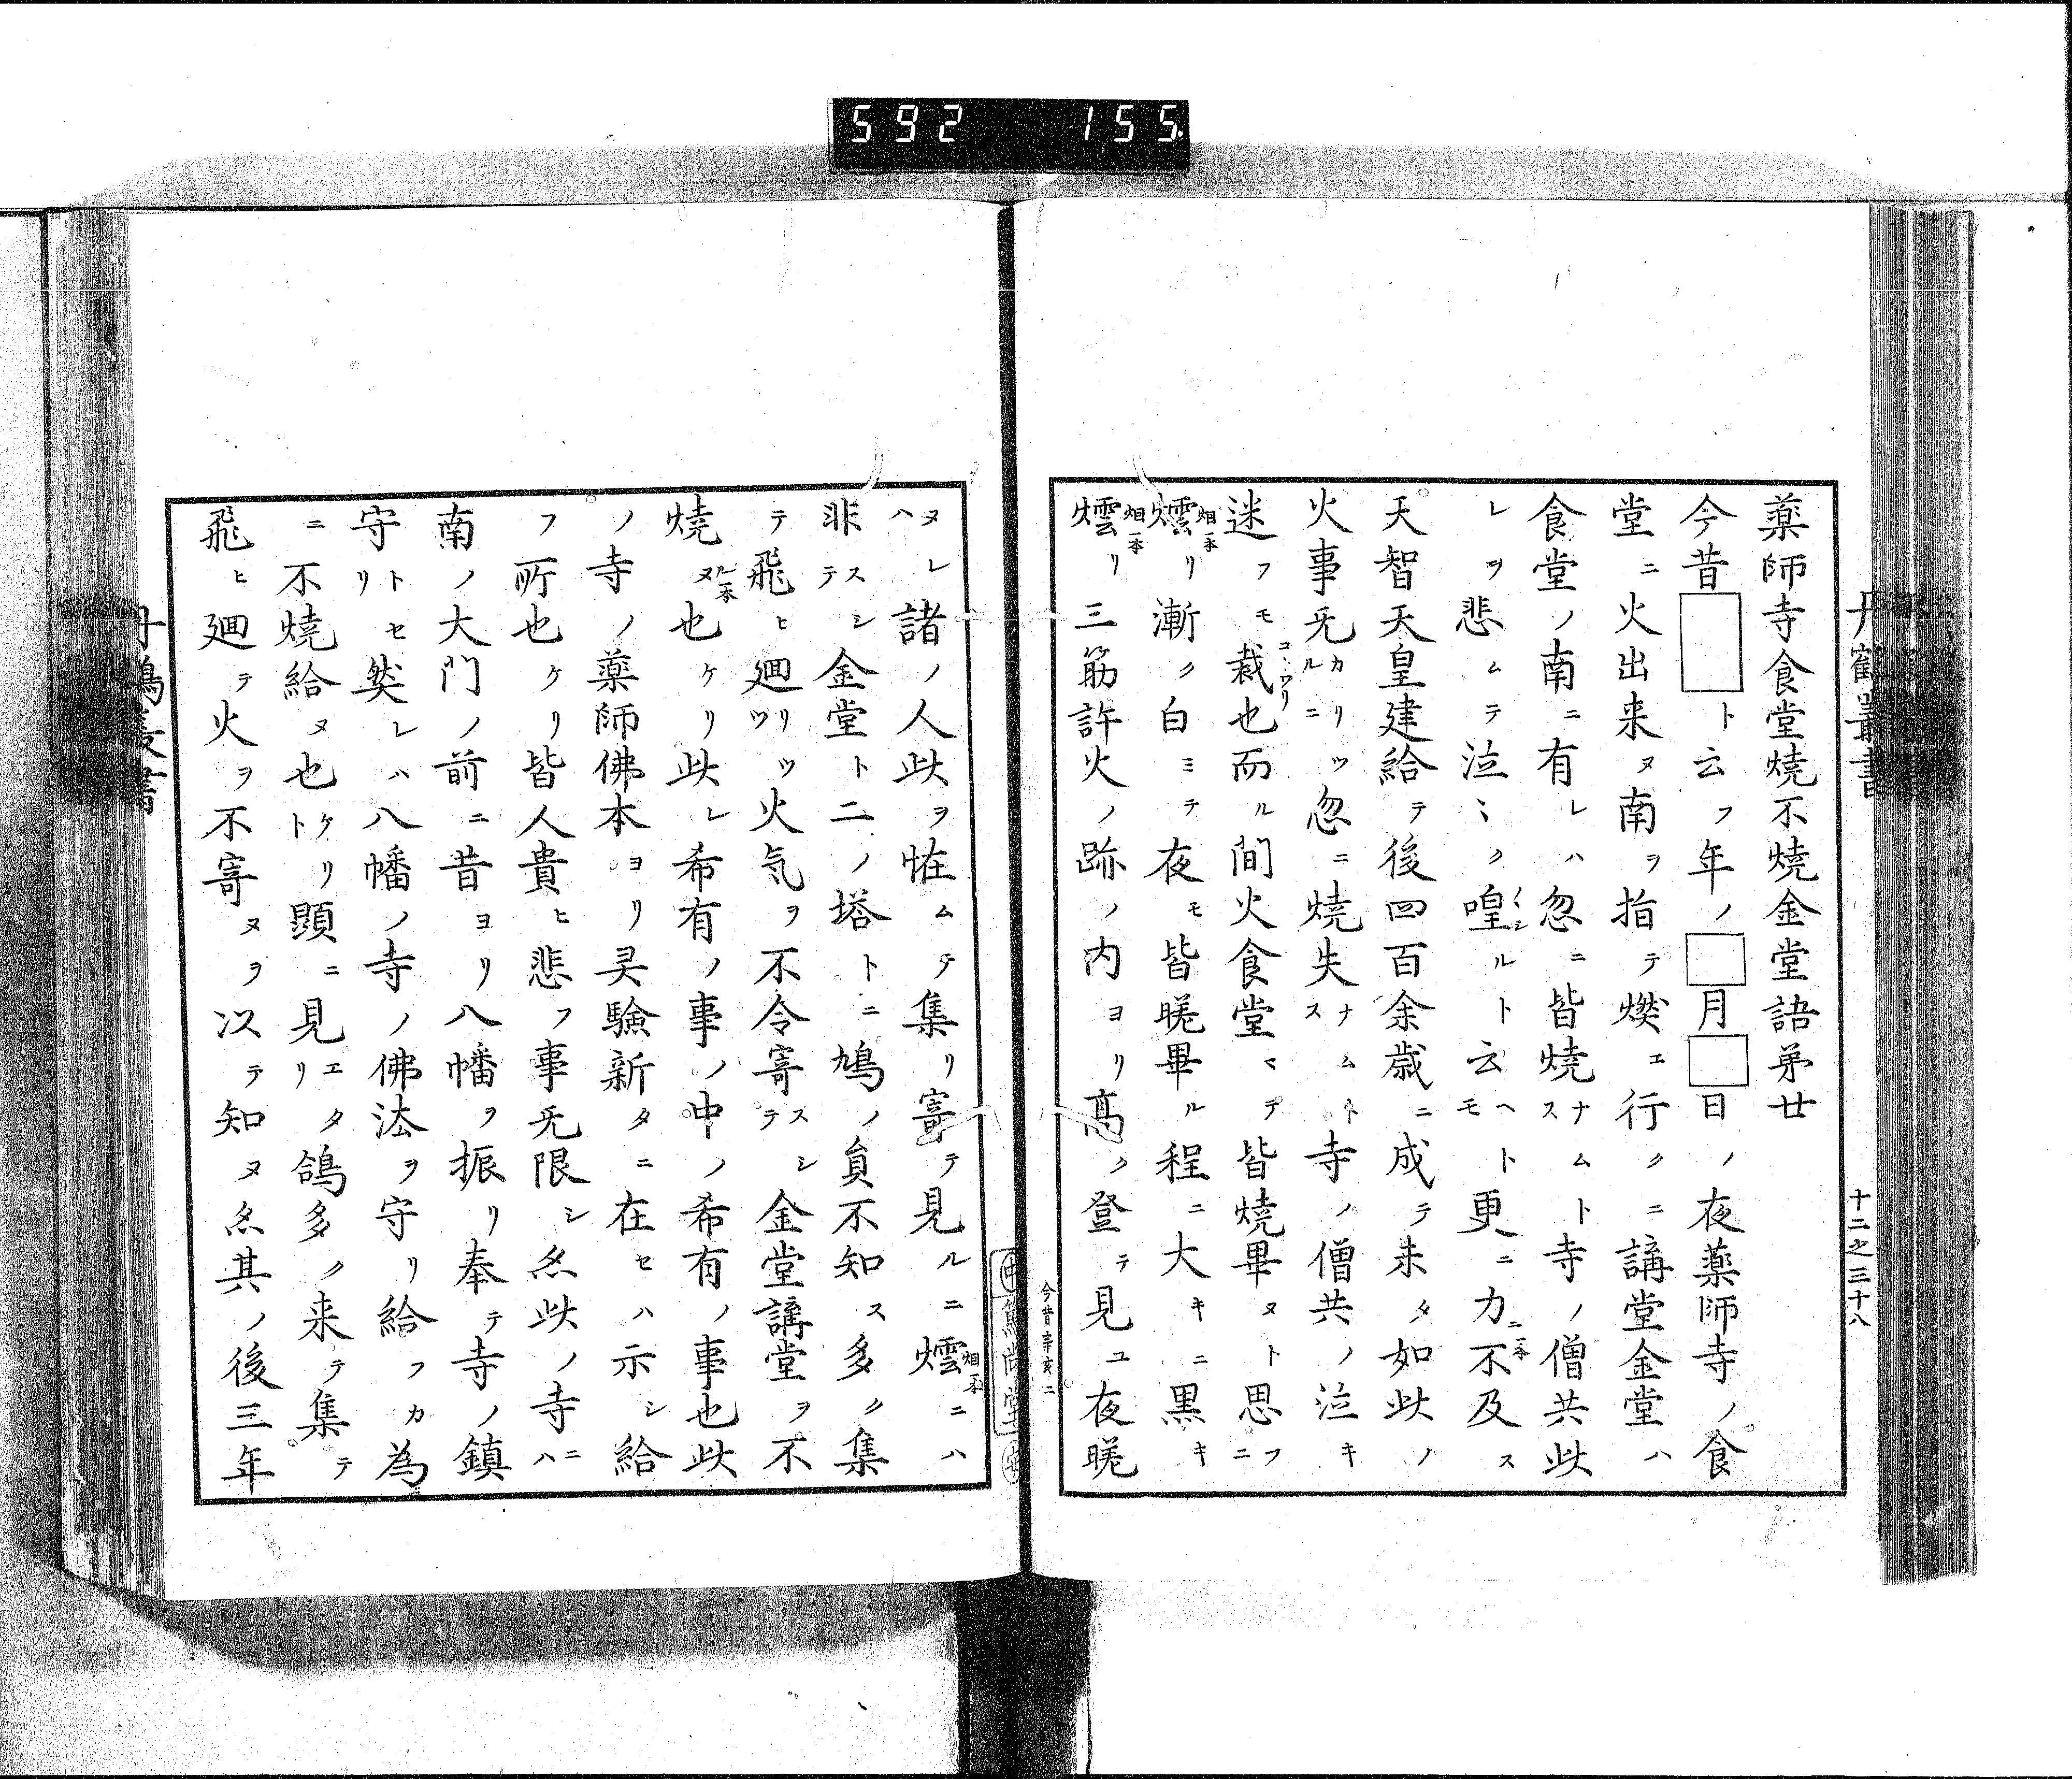 592 155
丹鶴叢書
十二之三十八
薬師寺食堂焼不焼金堂語弟廿
今昔□ト云フ年ノ□月□日ノ夜薬師寺ノ食
堂ニ火出来ヌ南ヲ指テ燃エ行クニ講堂金堂ハ
食堂ノ南ニ有レハ忽ニ皆焼ナムトス寺ノ僧共此
レヲ悲ムテ泣〻ク喤ルト云ヘトモ更ニ力不及ス
天智天皇建給テ後四百余歳ニ成テ未タ如此ノ
火事旡カリツルニ忽ニ焼失ナムトス寺ノ僧共ノ泣キ
迷フモ裁也而ル間火食堂マテ皆焼畢ヌト思フニ
㷧リ漸ク白ミテ夜モ皆暛畢ル程ニ大キニ黒キ
㷧リ三筋許火ノ跡ノ内ヨリ髙ク登テ見ユ夜暛
今昔辛亥二
ヌレハ諸ノ人此ヲ恠ムテ集リ寄テ見ルニ㷧ニハ
非スシテ金堂ト二ノ塔トニ鳩ノ員不知ス多ク集
テ飛ヒ廻リツツ火気ヲ不令寄スシテ金堂講堂ヲ不
焼ヌ也ケリ此レ希有ノ事ノ中ノ希有ノ事也此
ノ寺ノ薬師佛本ヨリ㚑驗新タニ在セハ示シ給
フ所也ケリ皆人貴ヒ悲フ事旡限シ亦此ノ寺ニハ
南ノ大門ノ前ニ昔ヨリ八幡ヲ振リ奉テ寺ノ鎮
守トセリ然レハ八幡ノ寺ノ佛法ヲ守リ給フカ為
ニ不焼給ヌ也ケリト顕ニ見エタリ鴿多ク来テ集テ
飛ヒ廻テ火ヲ不寄ヌヲ以テ知ヌ亦其ノ後三年